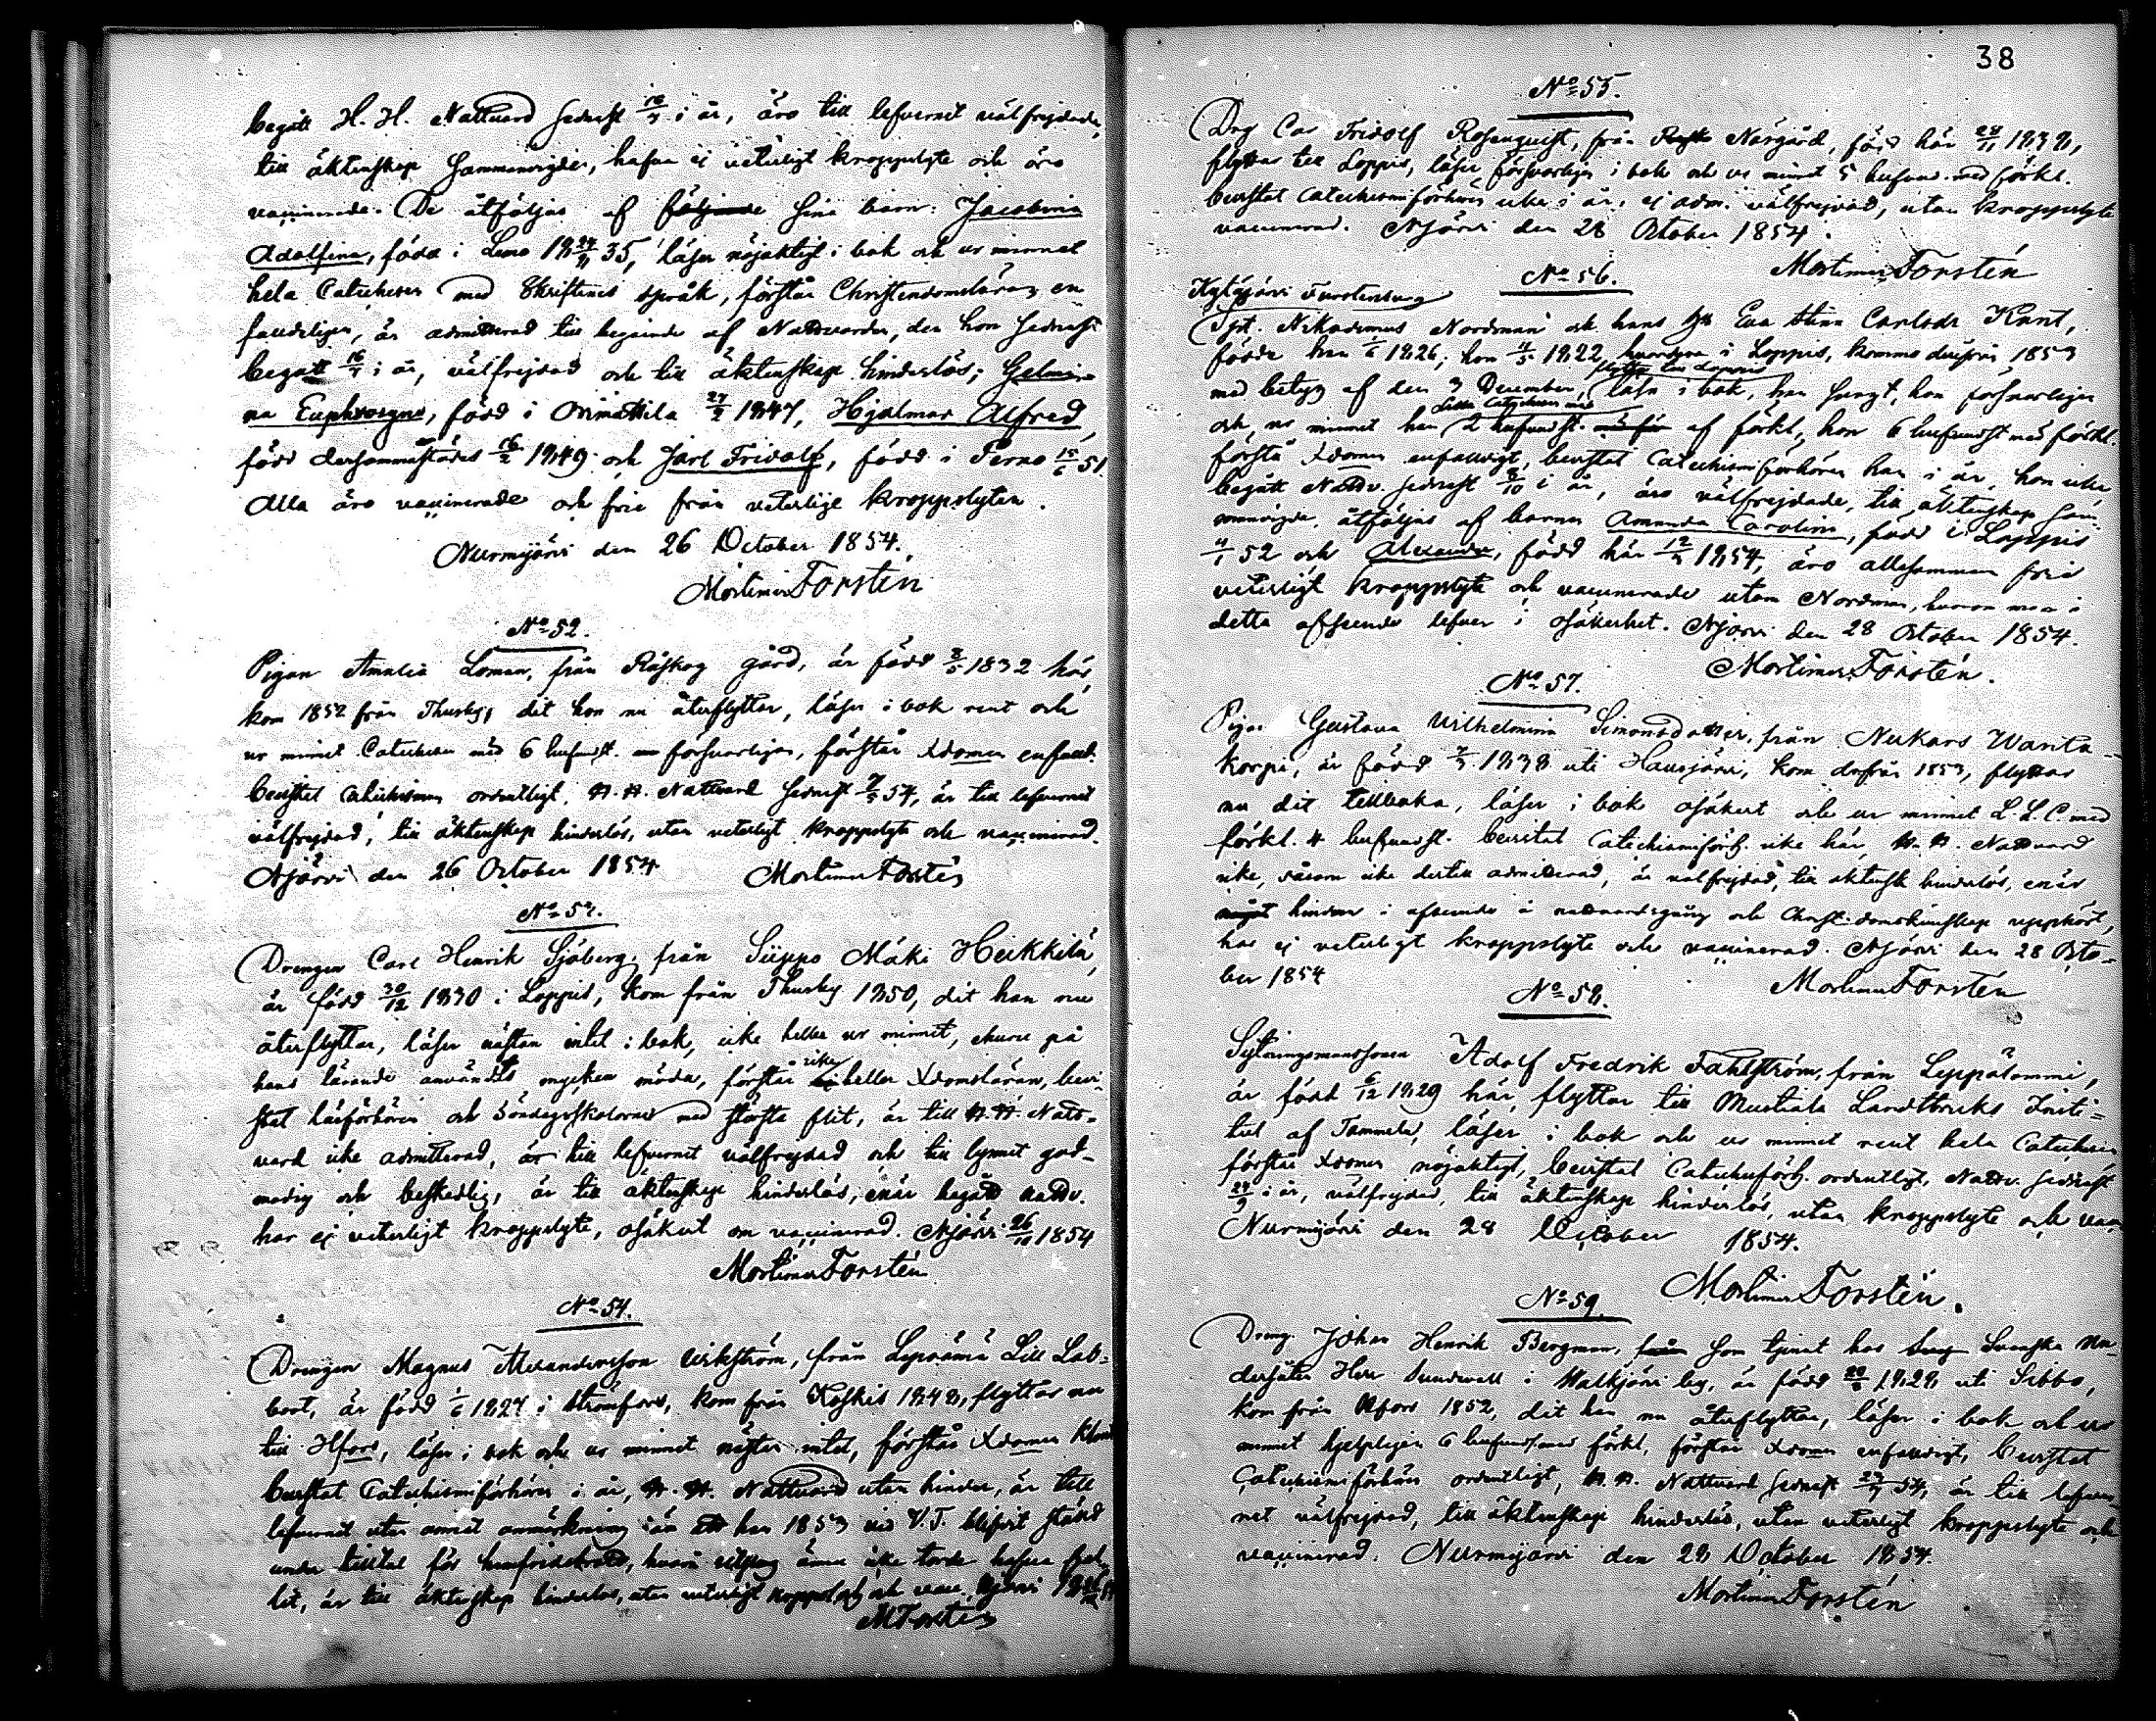 begått H. H. Nattvard sednast 16/7 i år, äro till lefvernet välfrejdade,
till äktenskap sammanvigde, hafva ej veterligt kroppslyte och äro
vaccinerade. De åtföljas af följande sina barn: Jacobina
Adolfina, född i Lemo 18 24/11 35, läser nöjaktigt i bok och ur minnet
hela Catechesen med Skriftenes språk, förstår Christendomsläran en
faldeligen, är admitterad till begående af Nattvarden, den hon sednast
begått 16/7 i år, välfrejdad och till äktenskap hinderlös; Gelmi-
na Euphrosyne, född i Orimattila 27/2 1847, Hjalmar Alfred,
född dersammastädes 16/2 1849 och Jarl Fridolf, född i Perno 15/6 51.
Alla äro vaccinerade och frie från veterlige kroppslyten.
Nurmijärvi den 26 October 1854.
Mortimer Forstén
No 52.
Pigan Amalia Loman, från Råskog gård, är född 8/5 1832 här,
kom 1852 från Thusby, dit hon nu återflyttar, läser i bok rent och
ur minnet Catechesen med 6 hufvudst. försvarligen, förstår Xdomen enfald.
bevistat Catechismen ordentligt, H. H. Nattvard sednast 54, är till lefvernet
välfrejdad, till äktenskap hinderlös, utan veterligt kroppslyte och vaccinerad.
Njärvi den 26 October 1854 Mortimer Forstén
No 53.
Drengen Carl Henrik Sjöberg, från Siippo Mäki Heikkilä,
är född 30/12 1830 i Loppis, kom från Thusby 1850, dit han nu
återflyttar, läser nästan intet i bok, icke heller ur minnet, ehuru på
hans lärande användts mycken möda, förstår icke heller Xdomsläran, bevi-
stat läsförhören och Söndagsskolorne med största flit, är till H. H. Natt-
vard icke admitterad, är till lefvernet välfrejdad och till lynnet god-
modig och beskedlig, är till äktenskap hinderlös, enär begått nattv.
har ej veterligt kroppslyte, osäkert om vaccinerad. Njärvi 26/10 1854
Mortimer Forstén
No 54.
Drengen Magnus Alexandersson Wikström, från Lepsämä Lill Lab-
bart, är född 1/6 1827 i Strömfors, kom från Koskis 1848, flyttar nu
till Hfors, läser i bok och ur minnet nästan intet, förstår Xdomen
bevistat Catechismiförhören i år, H. H. Nattvard utan hinder, är till
lefvernet utan annat anmärkning än att han 1853 vid V. T. blifvit ställd
under tilltal för hemfridsbrott, hvari utslag ännu icke torde hafva fal-
lit, är till äktenskap hinderlös, utan veterligt kroppslyte och vacc. Njärvi
M Forstén
38
No 55.
Drg Car Fridolf Rosenquist, från Närgård, född här 24/11 1838,
flyttar till Loppis, läser försvarligen i bok och ur minnet 5 hufvud. med förkl.
bevistat Catechismiförhören icke i år, ej adm. välfrejdad, utan kroppslyte
vaccinerad. Njärvi den 28 October 1854.
Mortimer Forstén
No 56.
Kytäjärvi
Nikodemus Nordman och hans Eva Stina Carlsdr Kant,
födde han 1/6 1826; hon 11/5 1822 hvardera i Loppis, komma derifrån 1853
med betyg af den 3 December, flytta till Loppis läsa i bok, han svagt, hon försvarligen
och ur minnet han Lilla Catechesen med 2 hufvudst. af förkl., hon 6 hufvudst med förkl.
förstå Xdomen enfaldigt, bevistat Catechismiförhören han i år, hon icke,
begått Nattv. sednast 8/10 i år, äro välfrejdade, till äktenskap sam-
manvigde, åtföljas af barnen Amanda Carolina, född i Loppis
4/1 52 och Alexander, född här 12/3 1854, äro allesamman frie
veterligt kroppslyte och vaccinerade utom Nordman, hvarom man i
detta afseende lefver i osäkerhet. Njärvi den 28 October 1854.
Mortimer Forstén.
No 57.
Pigan Gustava Wilhelmina Simonsdotter, från Nukars Wanta-
korpi, är född 7/3 1838 uti Hausjärvi, kom derifrån 1853, flyttar
nu dit tillbaka, läser i bok osäkert och ur minnet L. L. C. med
förkl. 4 hufvudst. bevistat Catechismiförh. icke här, H. H. Nattvard
icke, såsom icke dertill admitterad, är välfrejdad, till äktensk hinderlös, enär
något hinder i afseende å nattvardsgång och Christ. domskunskap upphört,
har ej veterligt kroppslyte och vaccinerad. Njärvi den 28 Octo-
ber 1854
Mortimer Forstén
No 58.
Sytningsmanssonen Adolf Fredrik Fahlström, från Leppälammi,
är född 6/12 1829 här, flyttar till Mustiala Landtbruks Insti-
tut af Tammela, läser i bok och ur minnet rent hela Catechesen
förstår Xdomen nöjaktigt, bevistat Catechesförh. ordentligt, Nattv. sednast
24/9 i år, välfrejdad, till äktenskap hinderlös, utan kroppslyte och vacc.
Nurmijärvi den 28 October 1854.
Mortimer Forstén.
No 59.
Dreng. Johan Henrik Bergman, som tjenat hos Svenska Un-
dersåten Herr Sundwall i Walkjärvi by, är född 20/2 1828 uti Sibbo,
kom från Hfors 1852, dit han nu återflyttar, läser i bok och ur
minnet hjelpligen 6 hufvudst med förkl., förstår Xdomen enfaldigt, bevistat
Catechismiförhören ordentligt, H. H. Nattvard sednast 54, är till lefver-
net välfrejdad, till äktenskap hinderlös, utan veterligt kroppslyte och
vaccinerad. Nurmijärvi den 28 October 1854.
Mortimer Forstén